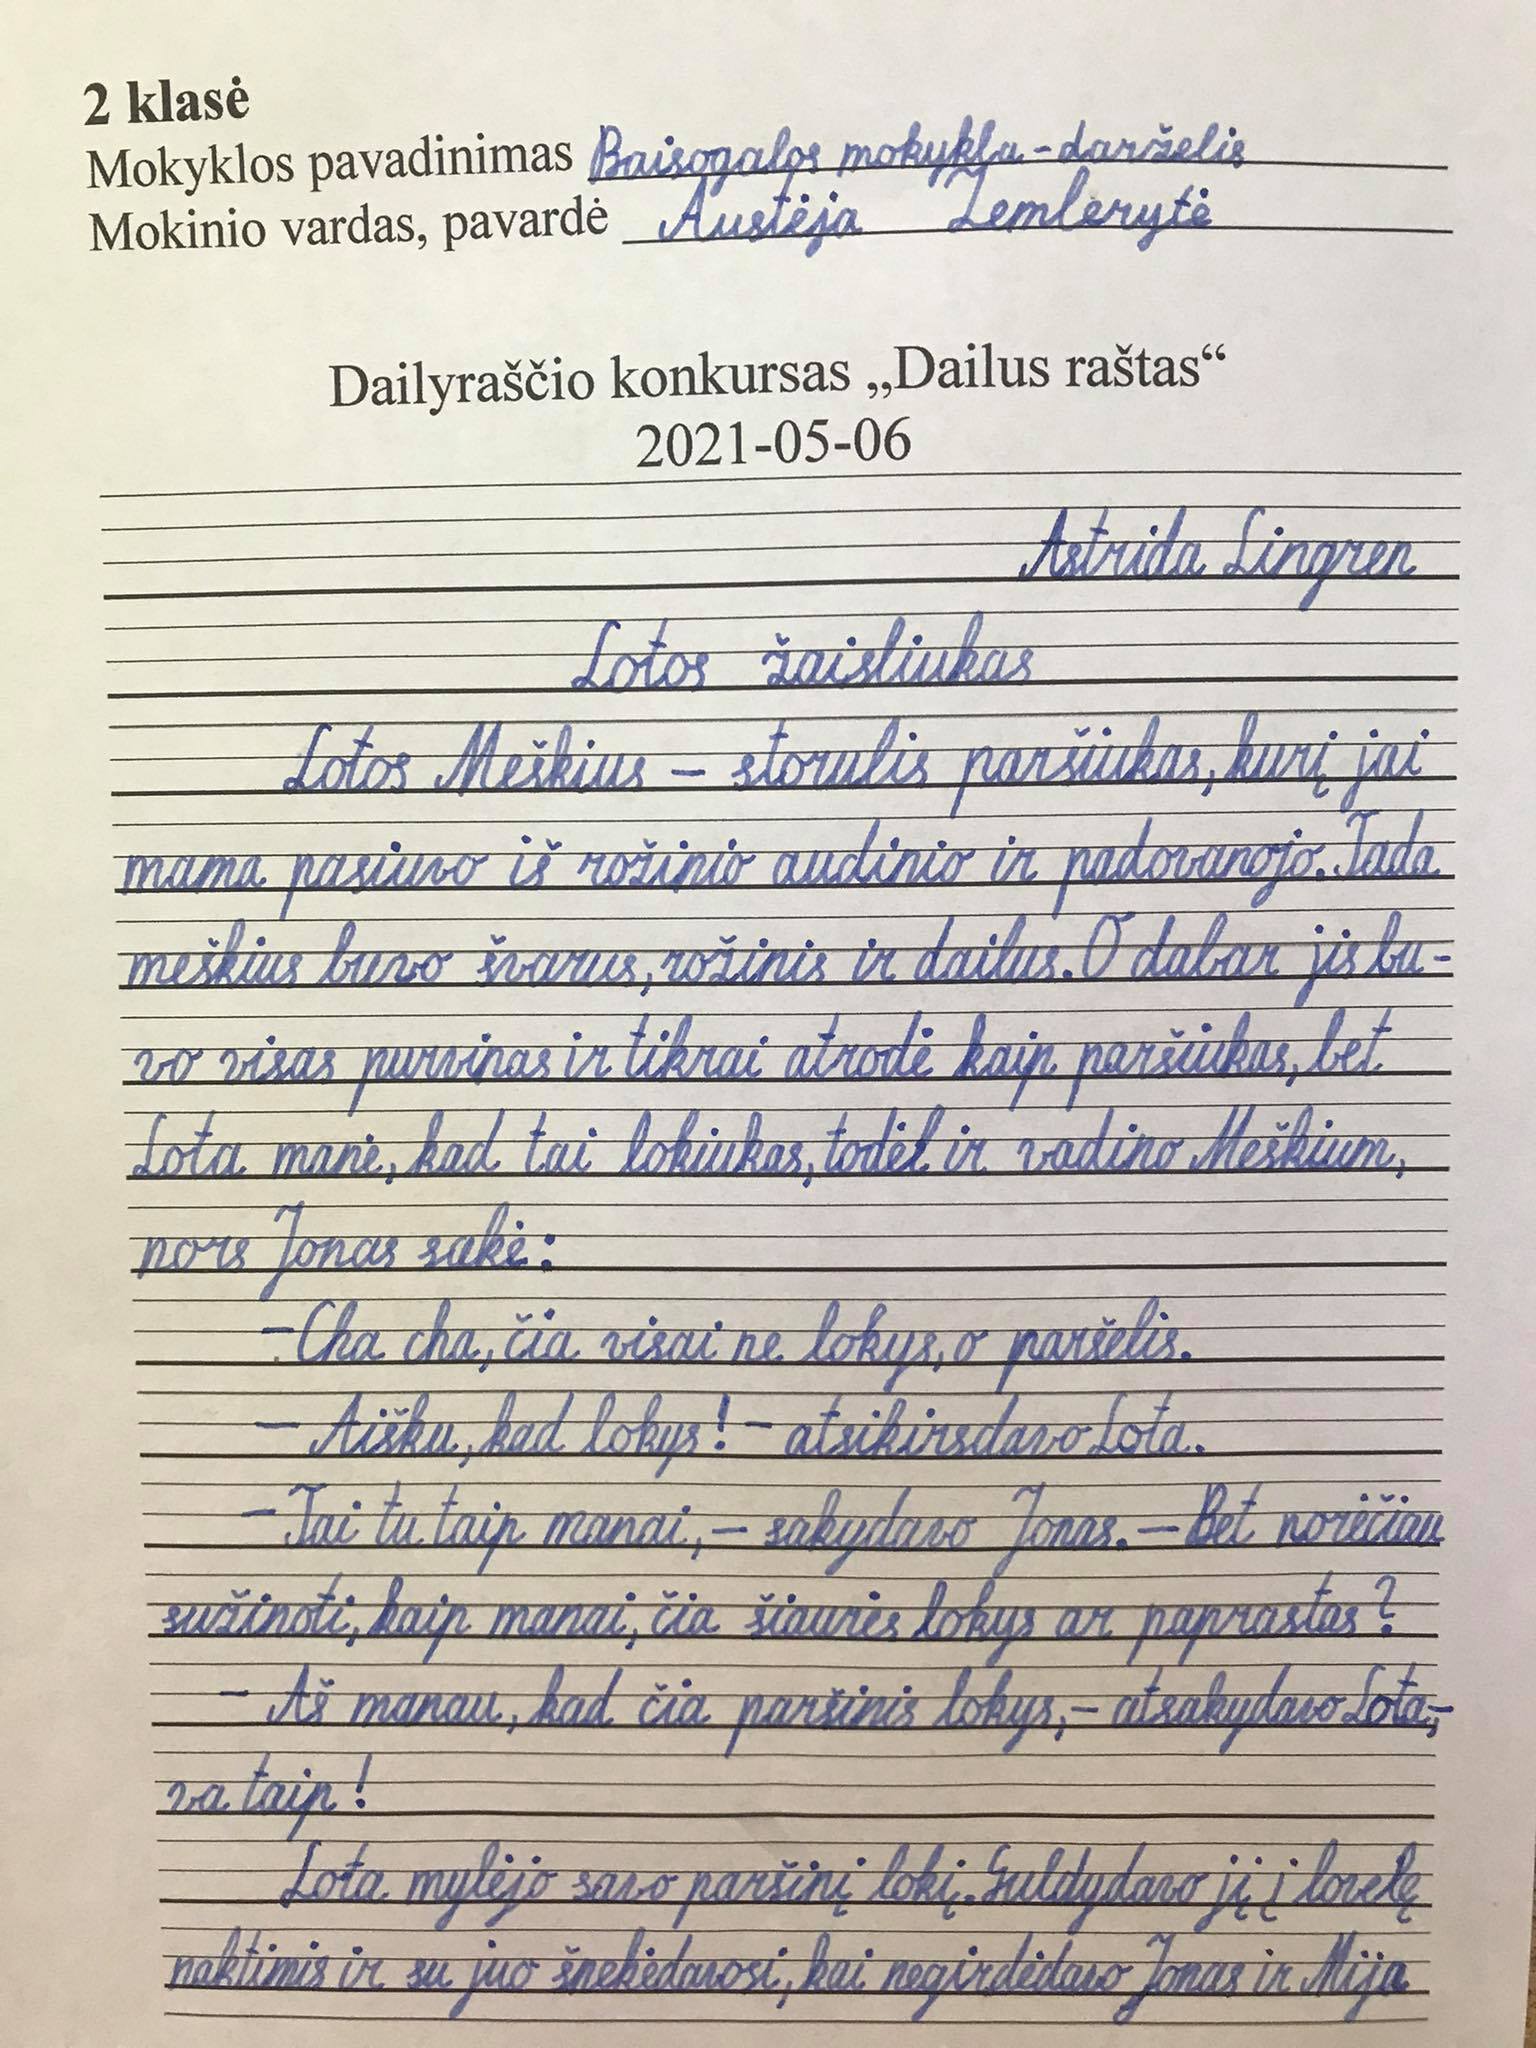 2 klasė
Mokyklos pavadinimas Baisogalos mokykla-darželis
Mokinio vardas, pavardė Austėja Žemlerytė
Dailyraščio konkursas „Dailus raštas“
2021-05-06
Astrida Lingren
Lotos žaisliukas
Lotos Meškius – storulis paršiukas, kurį jai
mama pasiuvo iš rožinio audinio ir padovanojo. Tada
meškius buvo švarus, rožinis ir dailus. O dabar jis bu-
vo visas purvinas ir tikrai atrodė kaip paršiukas, bet
Lota manė, kad tai lokiukas, todėl ir vadino Meškium,
nors Jonas sakė:
– Cha cha, čia visai ne lokys, o paršelis.
– Aišku, kad lokys! – atsikirsdavo Lota.
– Tai tu taip manai, – sakydavo Jonas. – Bet norėčiau
sužinoti, kaip manai, čia šiaurės lokys ar paprastas?
– Aš manau, kad čia paršinis lokys, – atsakydavo Lota, –
va taip!
Lota mylėjo savo paršinį lokį. Guldydavo jį į lovelę
naktimis ir su juo šnekėdavosi, kai negirdėdavo Jonas ir Mija